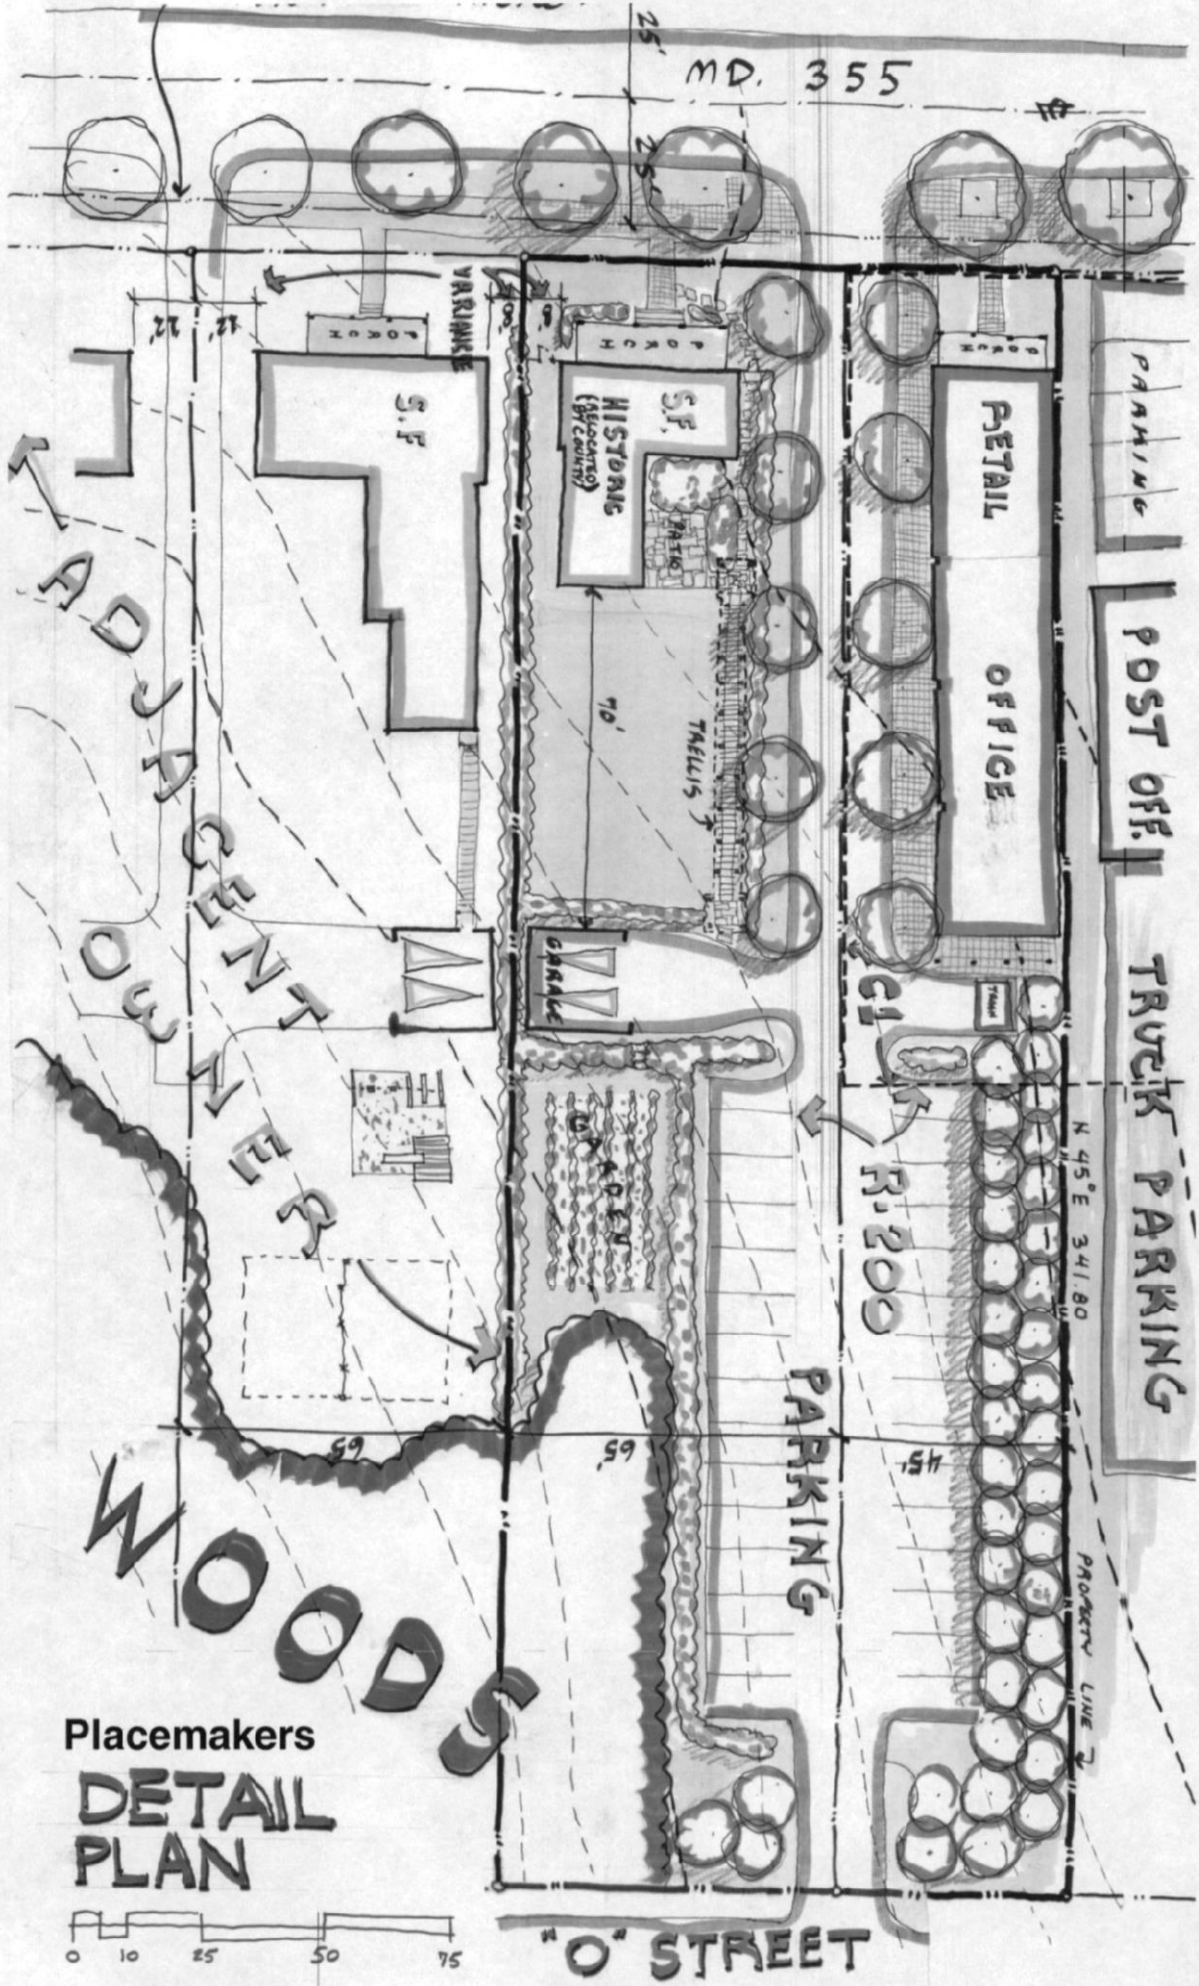 25'
MD. 355
25'
22'
12'
VARIANCE
8'
8'
PORCH
PORCH
PORCH
S.F
S.F.
HISTORIC
(RELOCATED
BY COUNTY)
PATIO
RETAIL
OFFICE
PARKING
POST OFF.
TRUCK PARKING
70'
TRELLIS
ADJACENT
OWNER
GARAGE
C1
TRASH
GARDEN
R-200
N 45° E 341.80
PARKING
65'
65'
45'
PROPERTY LINE
WOODS
Placemakers
DETAIL
PLAN
0 10 25 50 75
"O" STREET